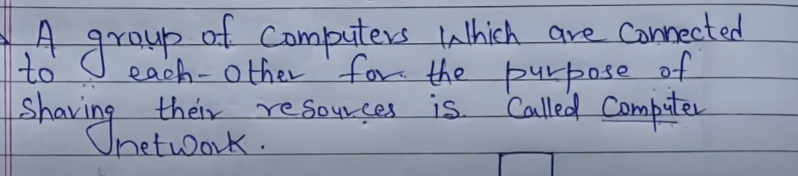 A group of Computers Which are Connected
to each-other for the purpose of
Sharing their resources is Called Computer
network.